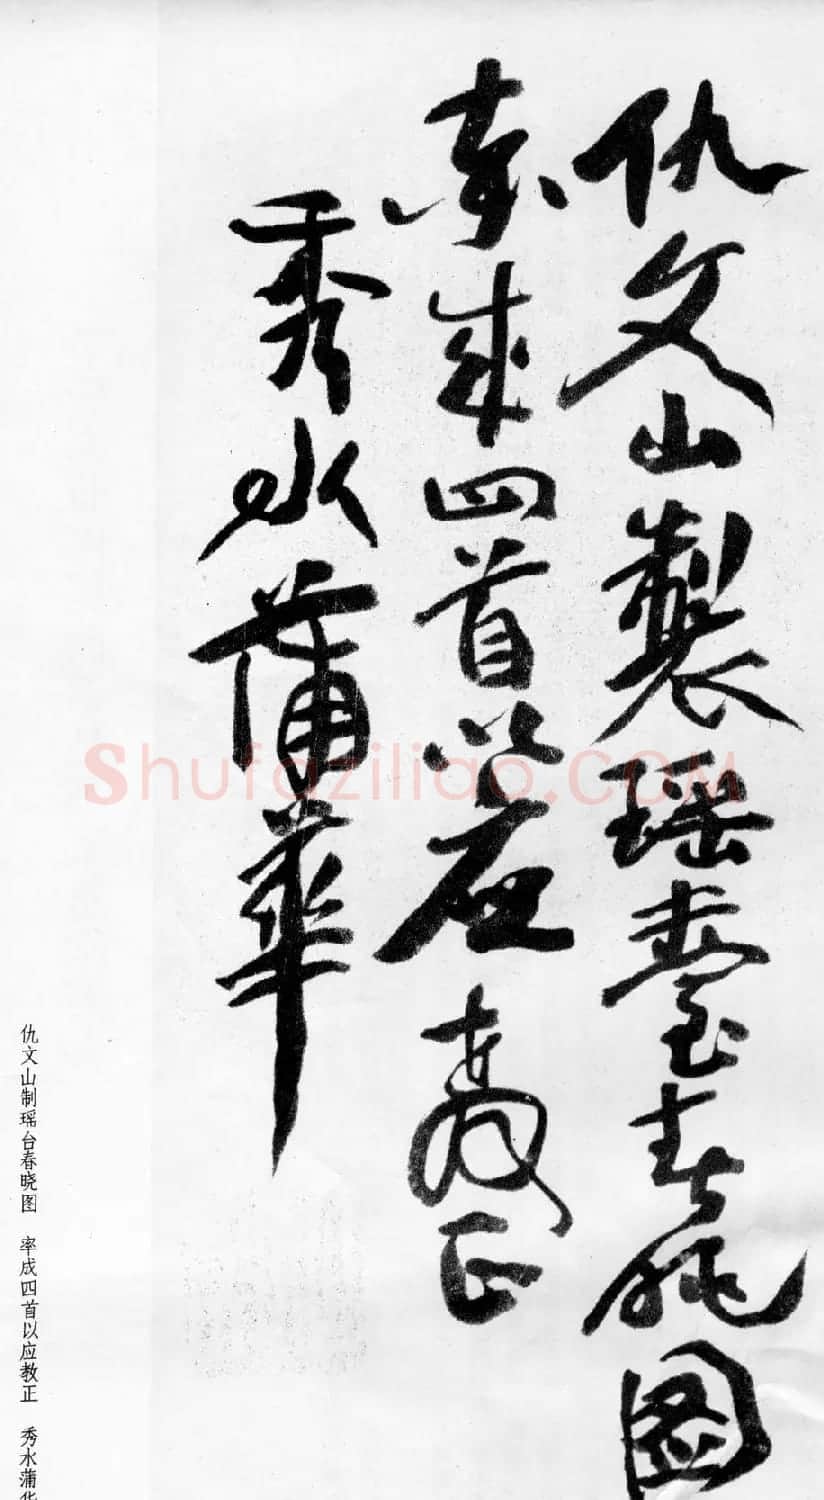 仇文山製瑶臺春曉圖
率成四首以應教正
秀水蒲華
仇文山制瑶台春晓图　率成四首以应教正　秀水蒲华
Shufaziliao.COM